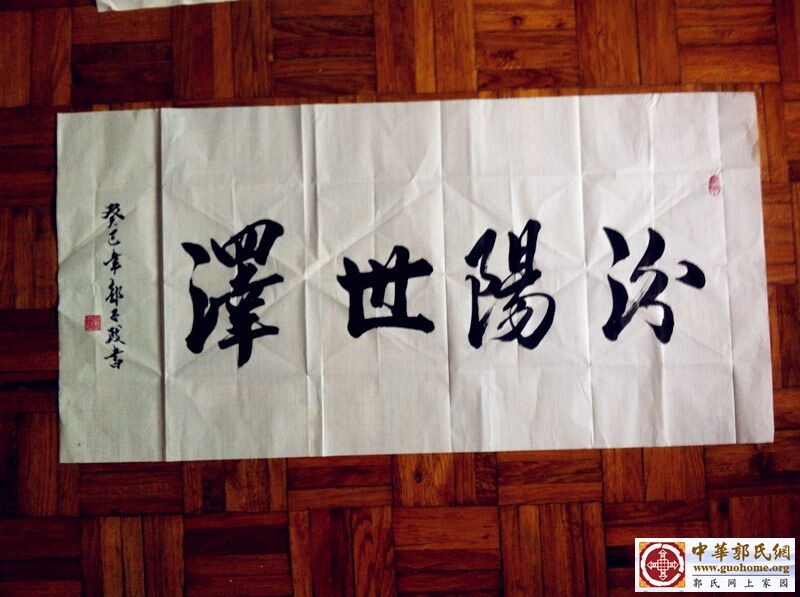 汾陽世澤
癸巳年郭子殷書
中華郭氏網
www.guohome.org
郭氏网上家园